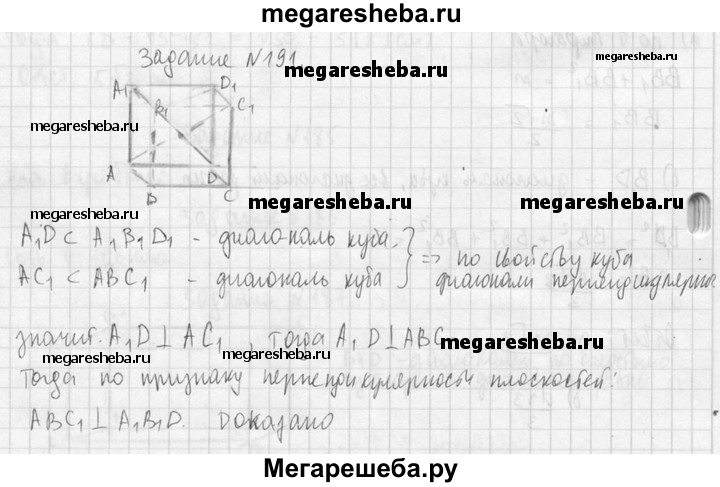 megaresheba.ru
Задание №191.
megaresheba.ru
megaresheba.ru
A1 D1
B1 C1
megaresheba.ru
A D
B C
megaresheba.ru
megaresheba.ru
A1D ⊂ A1B1D1 - диагональ куба.
AC1 ⊂ ABC1 - диагональ куба
} => по свойству куба
диагонали перпендикулярны
значит. A1D ⊥ AC1, тогда A1D ⊥ ABC
megaresheba.ru
megaresheba.ru
megaresheba.ru
Тогда по признаку перпендикулярности плоскостей:
ABC1 ⊥ A1B1D. Доказано
Мегарешеба.ру